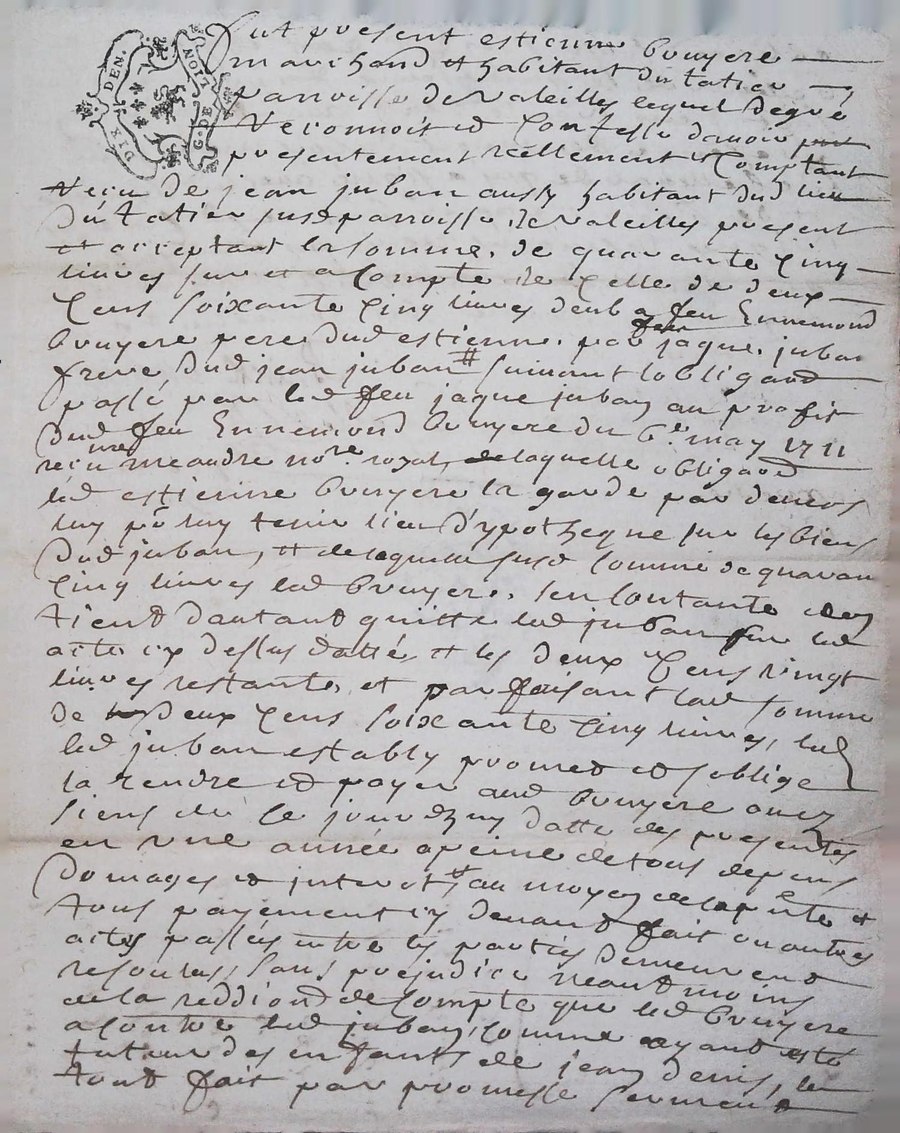 DIX DEN. G. DE LION
fut present estienne bruyere
marchand et habitant du tatier
parroisse de valeilles lequel de gré
reconnoit et confesse davoir
presentement reellement comptant
recu de jean juban aussy habitant dud lieu
du tatier susd parroisse de valeilles present
et acceptant la somme de quarante cinq
livres sur et a compte de celle de deux
cens soixante cinq livres deub a feu Ennemond
bruyere pere dud estienne, par feu jaque juban
frere dud jean juban # suivant lobligaod
passé par led feu jaque juban au profit
dud feu Ennemond bruyere du 6e may 1711
recu me andre nore royal, de laquelle obligaod
led estienne bruyere la garde par devers
luy po luy tenir lieu d'ypotheque sur les biens
dud juban, et de laquelle susd somme de quaran
cinq livres led bruyere, sen contante et en
tient dautant quitte led juban sur led
acte cy dessus datté, et les deux cens vingt
livres restante, et parfaisant lad somme
de deux cens soixante cinq livres, led
led juban estably promet et soblige
la rendre et payer aud bruyere ou ez
siens de ce jourdhuy datte des presentes
en une année a peine de tous depens
domages et interets # au moyen de la pnte et
tous payement cy devant fait ou autres
actes passes entre les parties demeurent
resolus, sans prejudice neantmoins
de la reddiond de compte que led bruyere
a contre led juban, comme ayant esté
tuteur des enfants de jean denis, le
tout fait par promesse serment